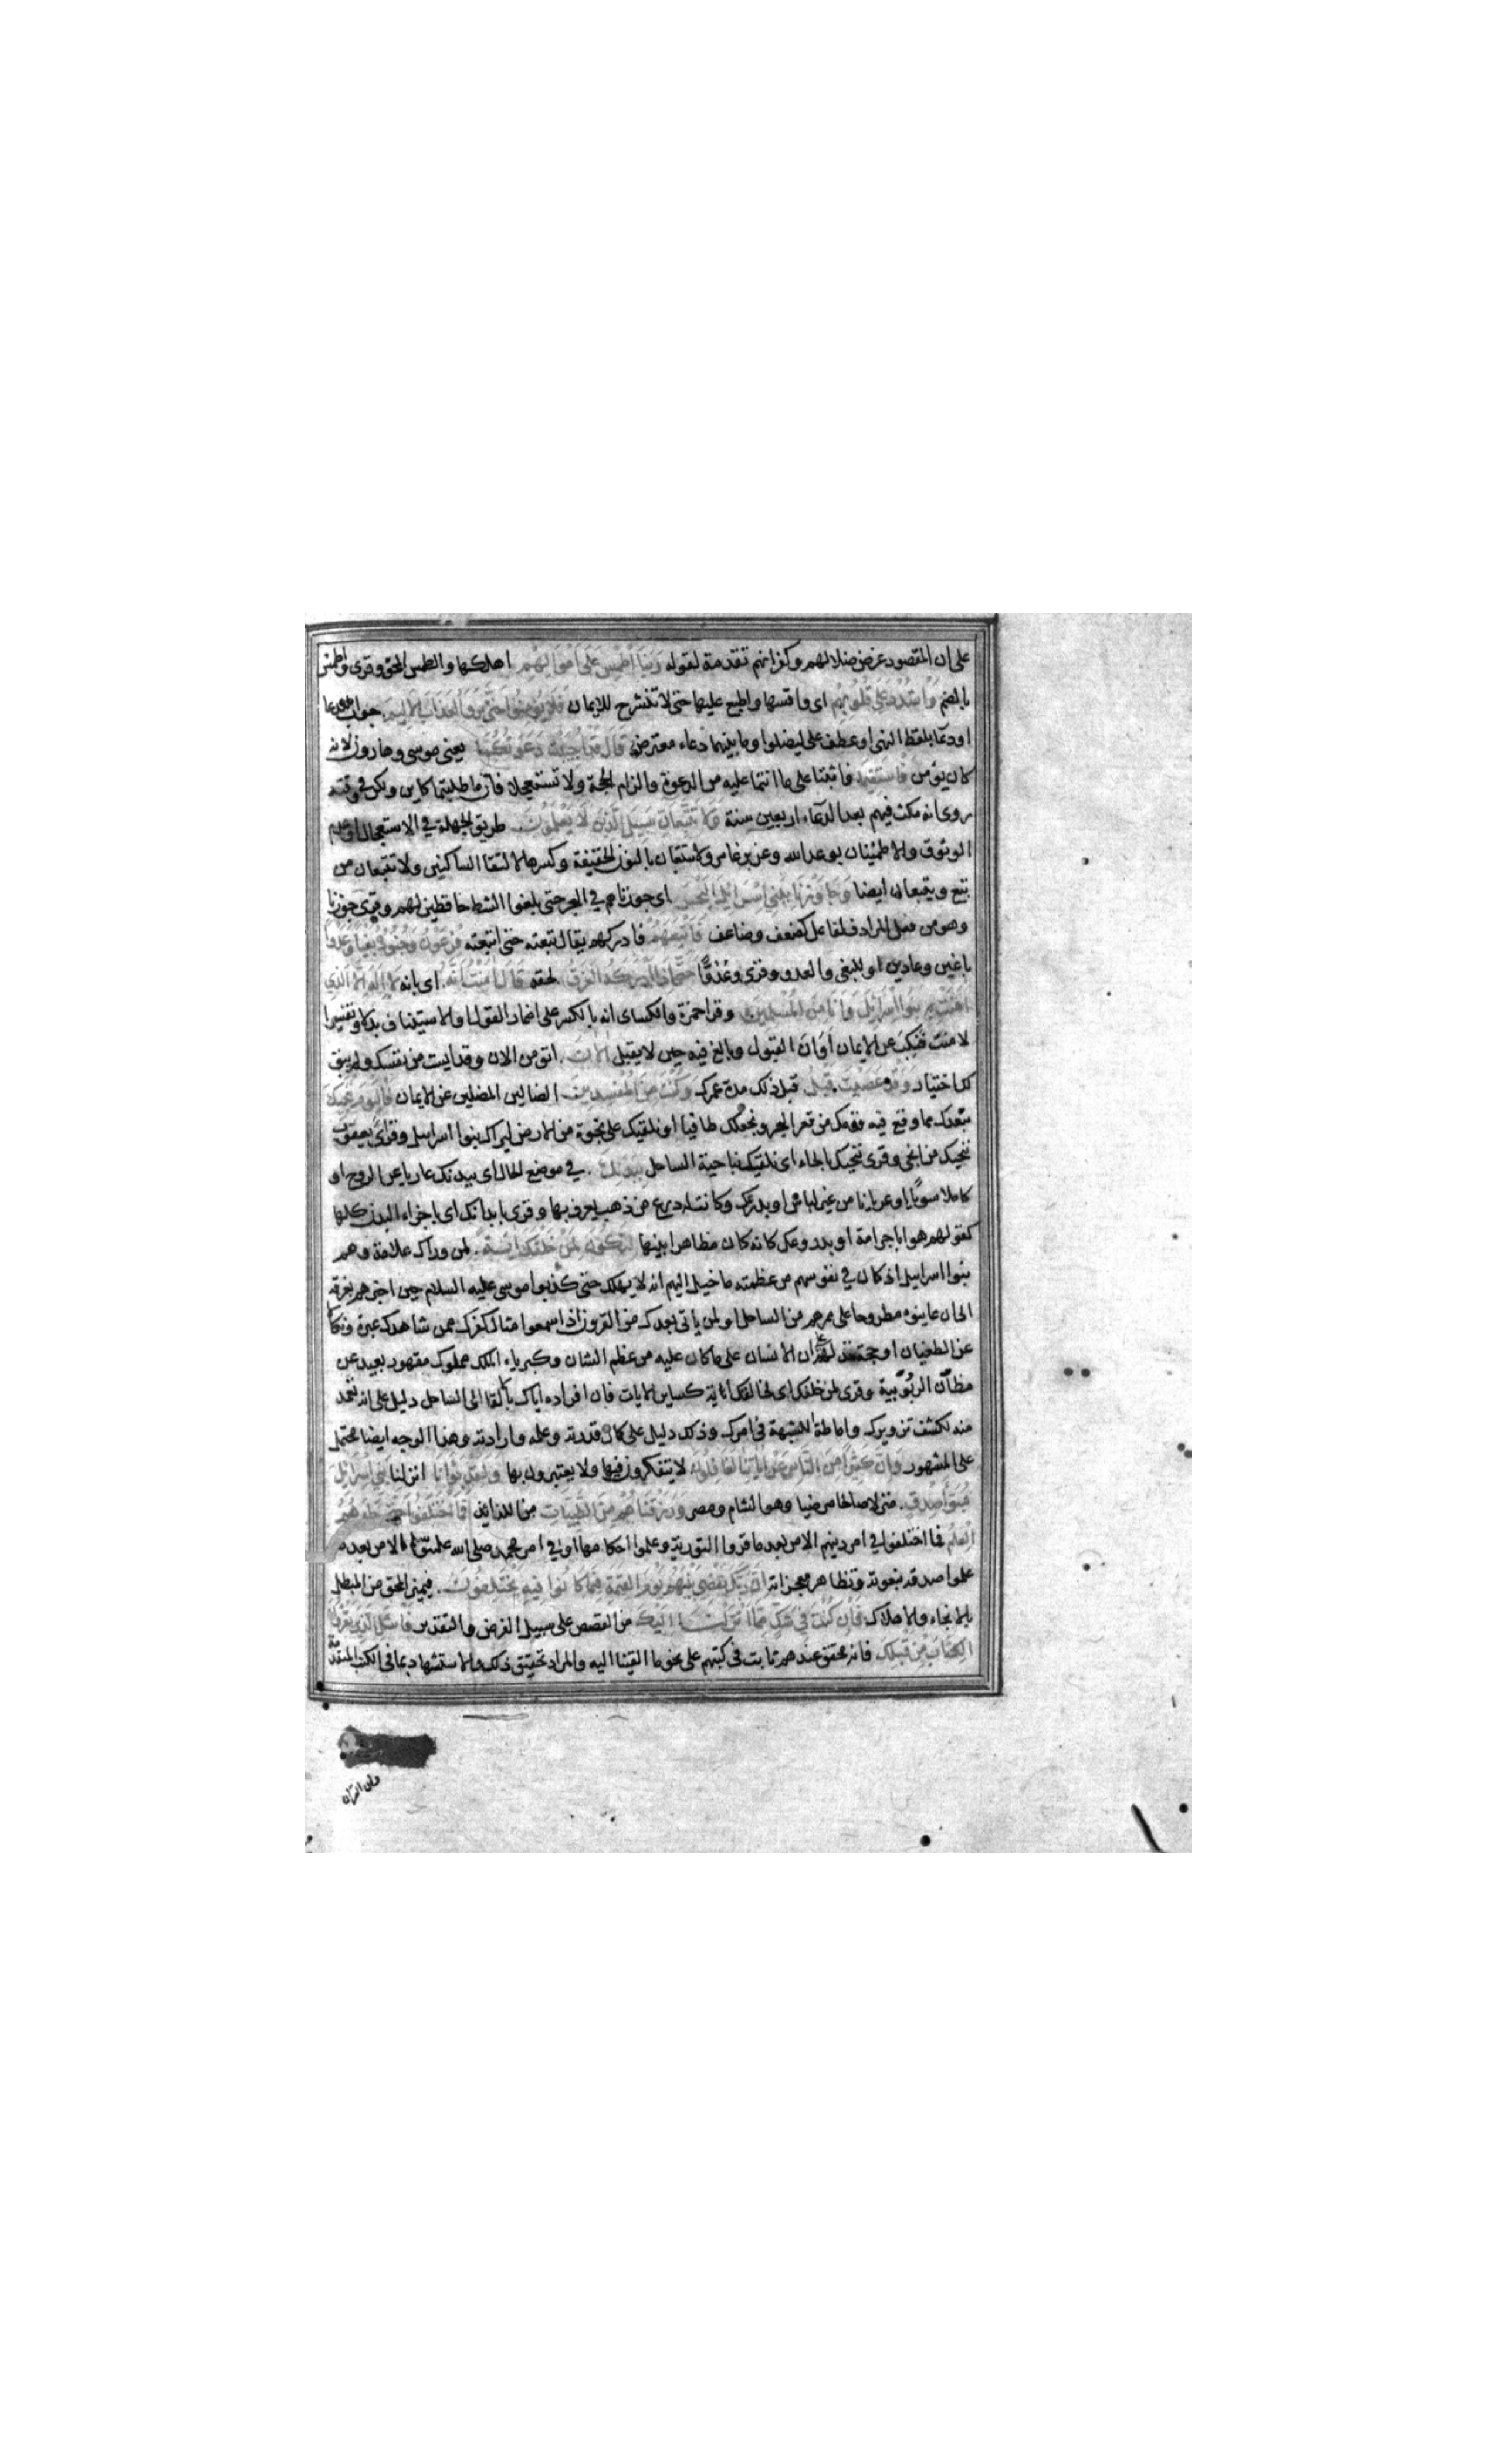 على ان المقصود عرض ضلالهم وكفرانهم تقدمة لقوله رَبَّنَا اطْمِسْ عَلَى أَمْوَالِهِمْ اهلكها والطمس المحق وقرئ واطمس
بالضم وَاشْدُدْ عَلَى قُلُوبِهِمْ اى واقسها واطبع عليها حتى لا تنشرح للايمان فَلَا يُؤْمِنُوا حَتَّى يَرَوُا الْعَذَابَ الْأَلِيمَ جواب للدعا
او دعا بلفظ النهى او عطف على ليضلوا وما بينهما دعاء معترض قَالَ قَدْ أُجِيبَتْ دَعْوَتُكُمَا يعنى موسى وهارون لانه
كان يؤمن فَاسْتَقِيمَا فاثبتا على ما انتما عليه من الدعوة والزام الحجة ولا تستعجلا فان ما طلبتما كاين ولكن فى وقته
روى انه مكث فيهم بعد الدعاء اربعين سنة وَلَا تَتَّبِعَانِّ سَبِيلَ الَّذِينَ لَا يَعْلَمُونَ طريق الجهلة فى الاستعجال او عدم
الوثوق والاطمئنان بوعد الله وعن بن عامر ولا تتبعان بالنون الخفيفة وكسرها لالتقا الساكنين ولا تتبعان من
تبع ويتبعان ايضا وَجَاوَزْنَا بِبَنِي إِسْرَائِيلَ الْبَحْرَ اى جوزناهم فى البحر حتى بلغوا الشط حافظين لهم وقرئ جوزنا
وهو من فعل المرادف لفاعل كضعف وضاعف فَأَتْبَعَهُمْ فادركهم يقال تبعته حتى اتبعته فِرْعَوْنُ وَجُنُودُهُ بَغْيًا وَعَدْوًا
باغين وعادين او للبغى والعدو وقرئ وعُدُوًّا حَتَّى إِذَا أَدْرَكَهُ الْغَرَقُ لحقه قَالَ آمَنْتُ أَنَّهُ اى بانه لَا إِلَهَ إِلَّا الَّذِي
آمَنَتْ بِهِ بَنُو إِسْرَائِيلَ وَأَنَا مِنَ الْمُسْلِمِينَ وقرا حمزة والكساى انه بالكسر على اضمار القول او الاستيناف بدلا وتفسيرا
لامنت فنكب عن الايمان اَوَانَ القبول وبالغ فيه حين لا يقبل آلْآنَ اتؤمن الان وقد ايست من نفسك ولم يبق
لك اختيار وَقَدْ عَصَيْتَ قَبْلُ قبل ذلك مدة عمرك وَكُنْتَ مِنَ الْمُفْسِدِينَ الضالين المضلين عن الايمان فَالْيَوْمَ نُنَجِّيكَ
نبعدك مما وقع فيه قومك من قعر البحر ونجعلك طافيا او نلقيك على نجوة من الارض ليراك بنوا اسرايل وقرأ يعقوب
ننجيك من انجى وقرئ ننحيك بالحاء اى نلقيك بناحية الساحل بِبَدَنِكَ فى موضع الحال اى ببدنك عاريا عن الروح او
كاملا سويًا او عريانا من غير لباس او بدرعك وكانت له درع من ذهب يعرف بها وقرئ بابدانك اى باجزاء البدن كلها
كقولهم هوا باجرامة او بدروعك كانه كان مظاهرا بينها لِتَكُونَ لِمَنْ خَلْفَكَ آيَةً لمن وراك علامة وهم
بنوا اسرايل اذ كان فى نفوسهم من عظمته ما خيل اليهم انه لا يهلك حتى كذبوا موسى عليه السلام حين اخبرهم بغرقه
الى ان عاينوه مطروحا على ممرهم من الساحل او لمن ياتى بعدك من القرون اذا سمعوا مآل امرك ممن شاهدك عبرة ونكالا
عن الطغيان او حجة تدلهم على ان الانسان على ما كان عليه من عظم الشان وكبرياء الملك مملوك مقهور بعيد عن
مظانّ الربوبية وقرئ لمن خلقك اى لخالقك اية كساير الايات فان افراده اياك بالقا الى الساحل دليل على انه تعمد
منه لكشف تزويرك واماطة الشبهة فى امرك وذلك دليل على كمال قدرته وعلمه وارادته وهذا الوجه ايضا محتمل
على المشهور وَإِنَّ كَثِيرًا مِنَ النَّاسِ عَنْ آيَاتِنَا لَغَافِلُونَ لا يتفكرون فيها ولا يعتبرون بها وَلَقَدْ بَوَّأْنَا انزلنا بَنِي إِسْرَائِيلَ
مُبَوَّأَ صِدْقٍ منزلا صالحا مرضيا وهو الشام ومصر وَرَزَقْنَاهُمْ مِنَ الطَّيِّبَاتِ من اللذايذ فَمَا اخْتَلَفُوا حَتَّى جَاءَهُمُ
الْعِلْمُ فما اختلفوا فى امر دينهم الا من بعد ما قروا التورية وعلموا احكامها او فى امر محمد صلى الله عليه وسلم الا من بعد ما
علموا صدقه بنعوته وتظاهر معجزاته إِنَّ رَبَّكَ يَقْضِي بَيْنَهُمْ يَوْمَ الْقِيَامَةِ فِيمَا كَانُوا فِيهِ يَخْتَلِفُونَ فيميز المحق من المبطل
بالانجاء والاهلاك فَإِنْ كُنْتَ فِي شَكٍّ مِمَّا أَنْزَلْنَا إِلَيْكَ من القصص على سبيل الفرض والتقدير فَاسْئَلِ الَّذِينَ يَقْرَؤُنَ
الْكِتَابَ مِنْ قَبْلِكَ فانه محقق عندهم ثابت فى كتبهم على نحو ما القينا اليه والمراد تحقيق ذلك والاستشهاد بما فى الكتب المتقدمة
وان القرآن